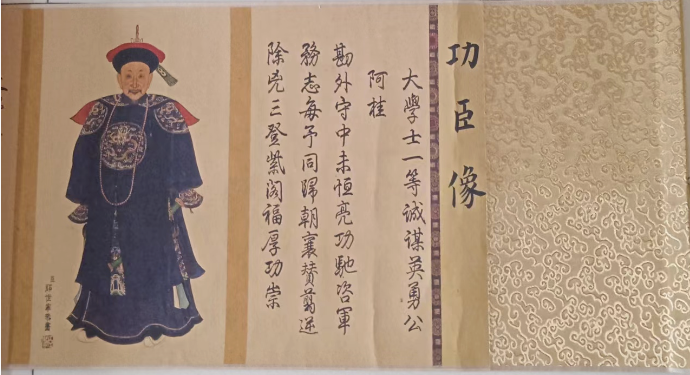 功臣像
大學士一等誠謀英勇公
阿桂
勘外守中未恒亮功馳咨軍
務志每予同歸朝襄賛翦逆
除兇三登紫阁福厚功崇